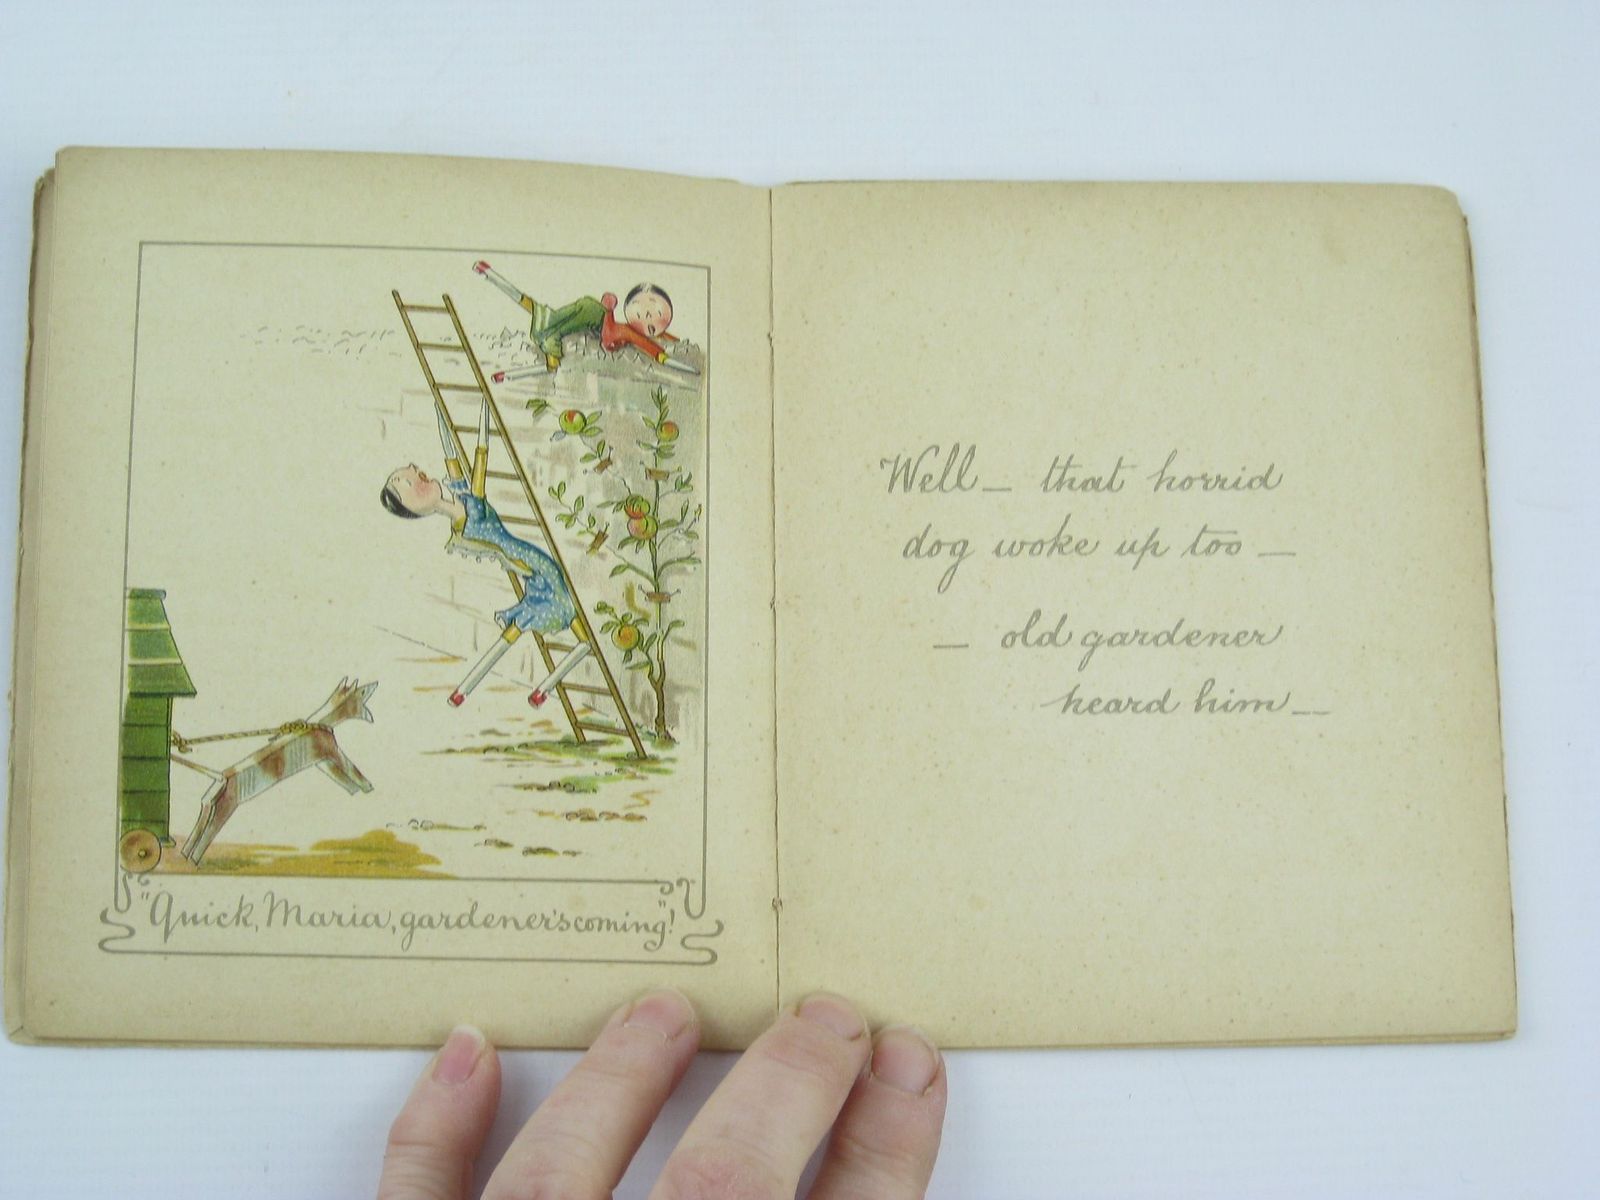 "Quick, Maria, gardener's coming"!
Well — that horrid
dog woke up too —
— old gardener
heard him —